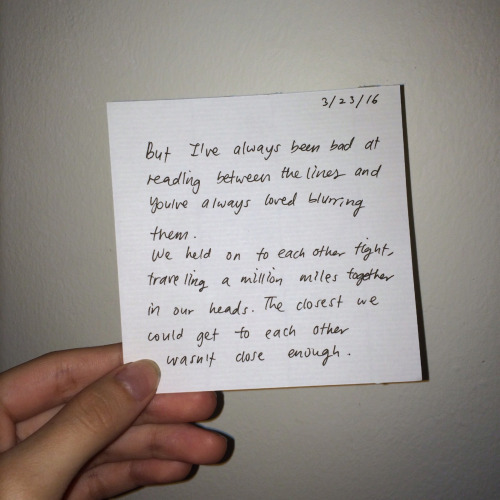 3/23/16
But I've always been bad at
reading between the lines and
you've always loved blurring
them.
We held on to each other tight,
traveling a million miles together
in our heads. The closest we
could get to each other
wasn't close enough.